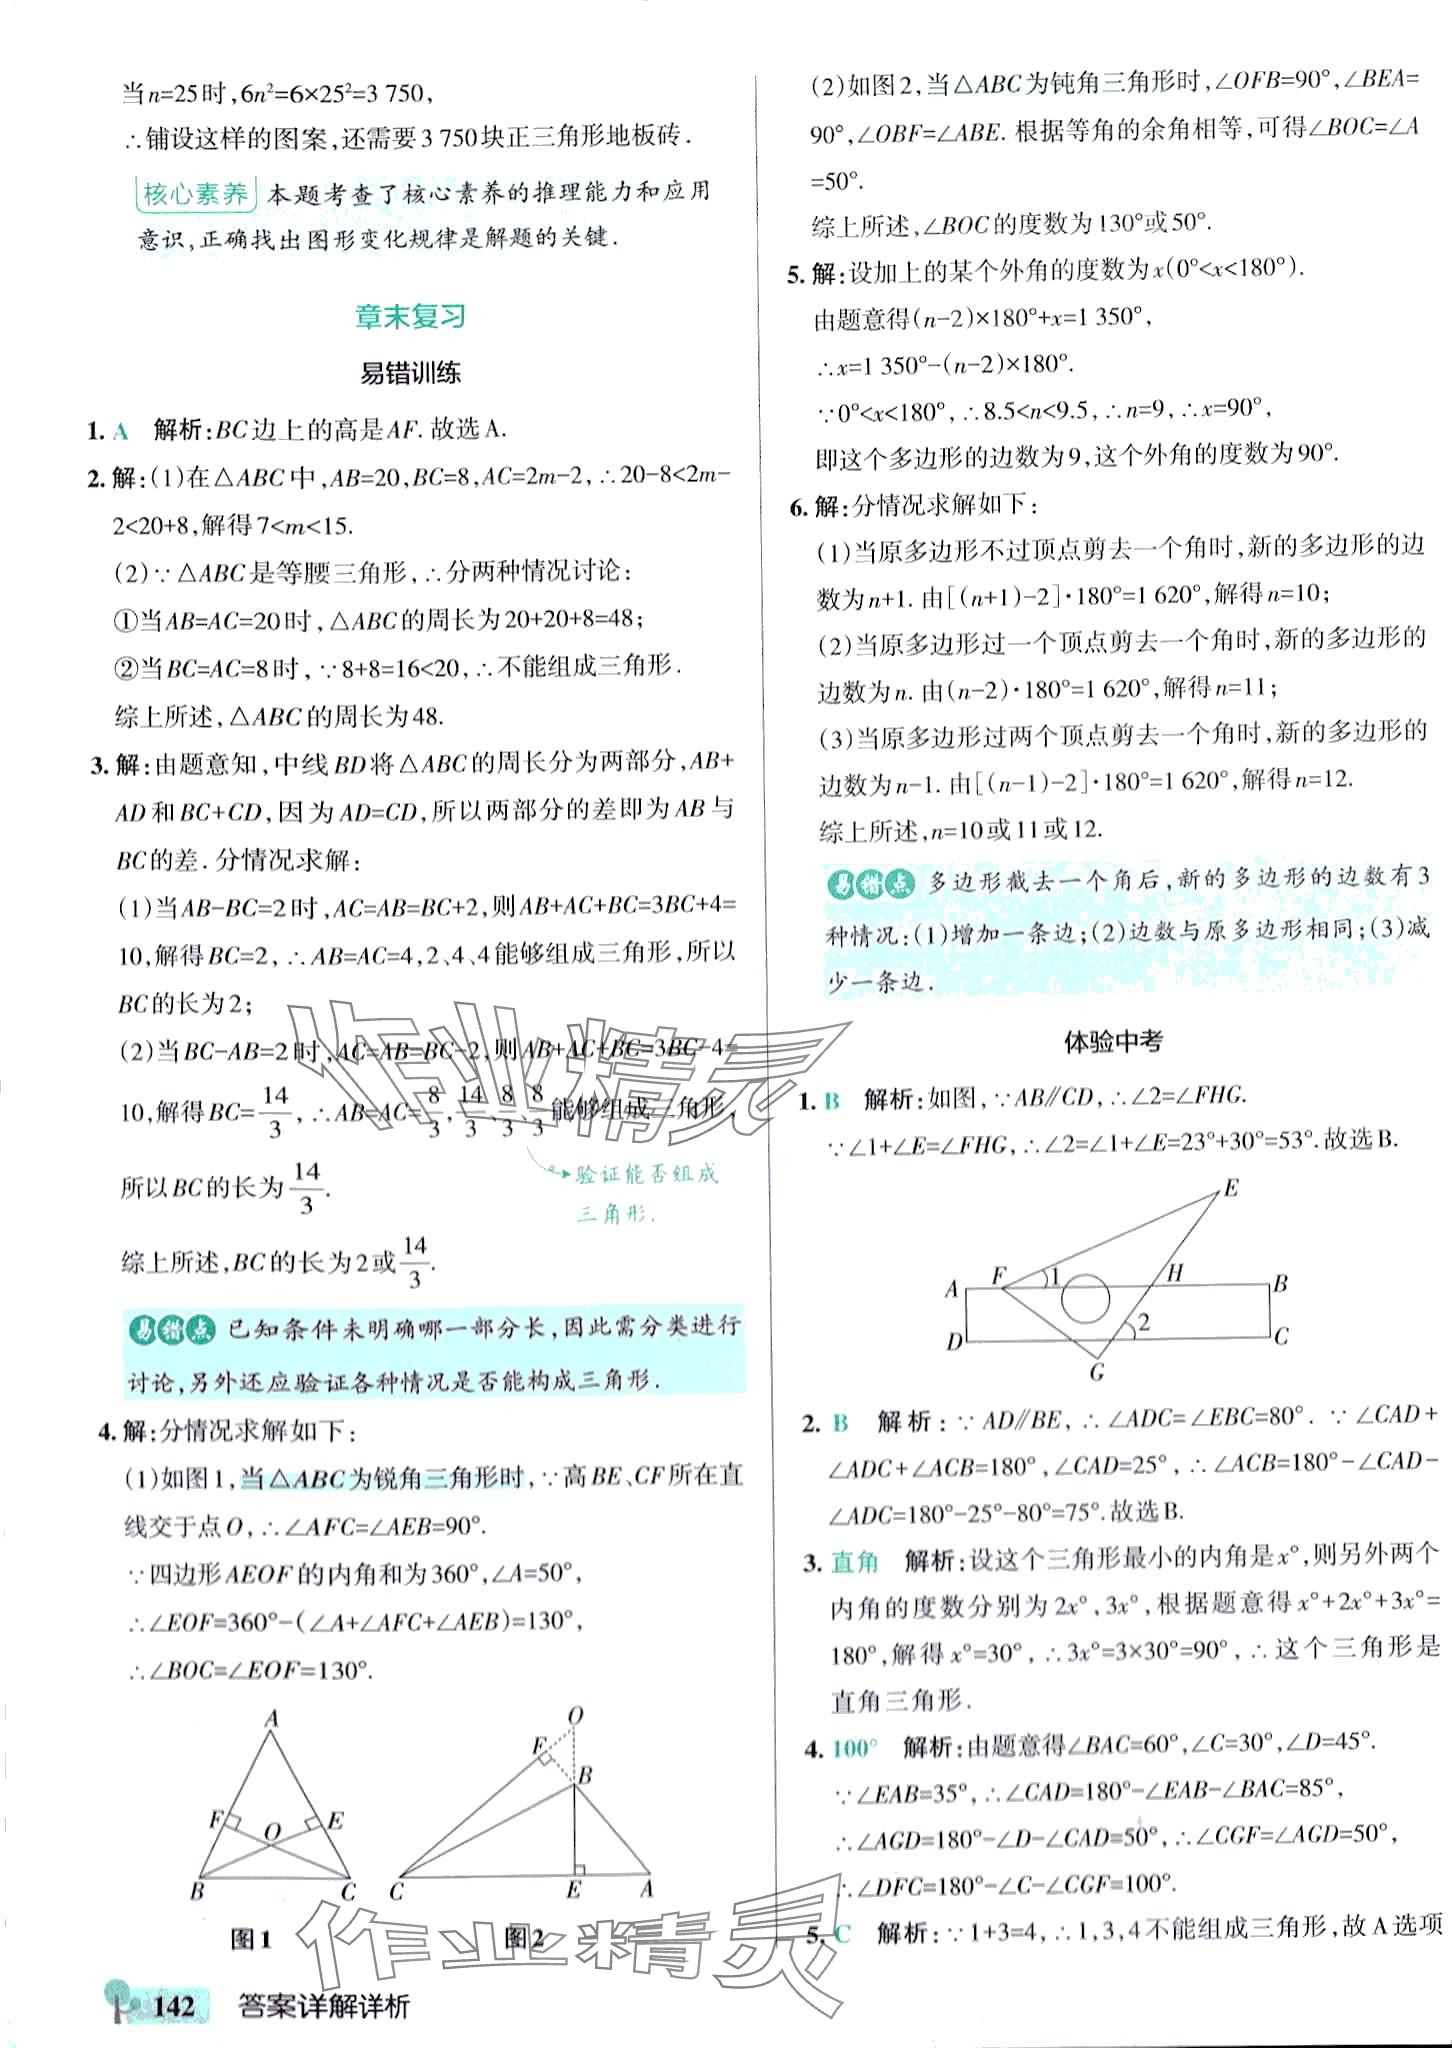 当n=25时,6n²=6×25²=3 750,
∴铺设这样的图案,还需要3 750块正三角形地板砖.
核心素养 本题考查了核心素养的推理能力和应用
意识,正确找出图形变化规律是解题的关键.
章末复习
易错训练
1. A 解析:BC边上的高是AF.故选A.
2. 解:(1)在△ABC中,AB=20,BC=8,AC=2m-2,∴20-8<2m-
2<20+8,解得7<m<15.
(2)∵△ABC是等腰三角形,∴分两种情况讨论:
①当AB=AC=20时,△ABC的周长为20+20+8=48;
②当BC=AC=8时,∵8+8=16<20,∴不能组成三角形.
综上所述,△ABC的周长为48.
3. 解:由题意知,中线BD将△ABC的周长分为两部分,AB+
AD和BC+CD,因为AD=CD,所以两部分的差即为AB与
BC的差.分情况求解:
(1)当AB-BC=2时,AC=AB=BC+2,则AB+AC+BC=3BC+4=
10,解得BC=2,∴AB=AC=4,2、4、4能够组成三角形,所以
BC的长为2;
(2)当BC-AB=2时,AC=AB=BC-2,则AB+AC+BC=3BC-4=
10,解得BC=14/3,∴AB=AC=8/3,14/3、8/3、8/3能够组成三角形,
所以BC的长为14/3.
验证能否组成
三角形.
综上所述,BC的长为2或14/3.
易错点 已知条件未明确哪一部分长,因此需分类进行
讨论,另外还应验证各种情况是否能构成三角形.
4. 解:分情况求解如下:
(1)如图1,当△ABC为锐角三角形时,∵高BE、CF所在直
线交于点O,∴∠AFC=∠AEB=90°.
∵四边形AEOF的内角和为360°,∠A=50°,
∴∠EOF=360°-(∠A+∠AFC+∠AEB)=130°,
∴∠BOC=∠EOF=130°.
A
F
O
E
B
C
图1
O
F
B
C
E
A
图2
142 答案详解详析
(2)如图2,当△ABC为钝角三角形时,∠OFB=90°,∠BEA=
90°,∠OBF=∠ABE.根据等角的余角相等,可得∠BOC=∠A
=50°.
综上所述,∠BOC的度数为130°或50°.
5. 解:设加上的某个外角的度数为x(0°<x<180°).
由题意得(n-2)×180°+x=1 350°,
∴x=1 350°-(n-2)×180°.
∵0°<x<180°,∴8.5<n<9.5,∴n=9,∴x=90°,
即这个多边形的边数为9,这个外角的度数为90°.
6. 解:分情况求解如下:
(1)当原多边形不过顶点剪去一个角时,新的多边形的边
数为n+1.由[(n+1)-2]·180°=1 620°,解得n=10;
(2)当原多边形过一个顶点剪去一个角时,新的多边形的
边数为n.由(n-2)·180°=1 620°,解得n=11;
(3)当原多边形过两个顶点剪去一个角时,新的多边形的
边数为n-1.由[(n-1)-2]·180°=1 620°,解得n=12.
综上所述,n=10或11或12.
易错点 多边形截去一个角后,新的多边形的边数有3
种情况:(1)增加一条边;(2)边数与原多边形相同;(3)减
少一条边.
体验中考
1. B 解析:如图,∵AB∥CD,∴∠2=∠FHG.
∵∠1+∠E=∠FHG,∴∠2=∠1+∠E=23°+30°=53°.故选B.
E
A
F
1
H
B
D
2
C
G
2. B 解析:∵AD∥BE,∴∠ADC=∠EBC=80°.∵∠CAD+
∠ADC+∠ACB=180°,∠CAD=25°,∴∠ACB=180°-∠CAD-
∠ADC=180°-25°-80°=75°.故选B.
3. 直角 解析:设这个三角形最小的内角是x°,则另外两个
内角的度数分别为2x°,3x°,根据题意得x°+2x°+3x°=
180°,解得x°=30°,∴3x°=3×30°=90°,∴这个三角形是
直角三角形.
4. 100° 解析:由题意得∠BAC=60°,∠C=30°,∠D=45°.
∵∠EAB=35°,∴∠CAD=180°-∠EAB-∠BAC=85°,
∴∠AGD=180°-∠D-∠CAD=50°,∴∠CGF=∠AGD=50°,
∴∠DFC=180°-∠C-∠CGF=100°.
5. C 解析:∵1+3=4,∴1,3,4不能组成三角形,故A选项
作业精灵
作业精灵